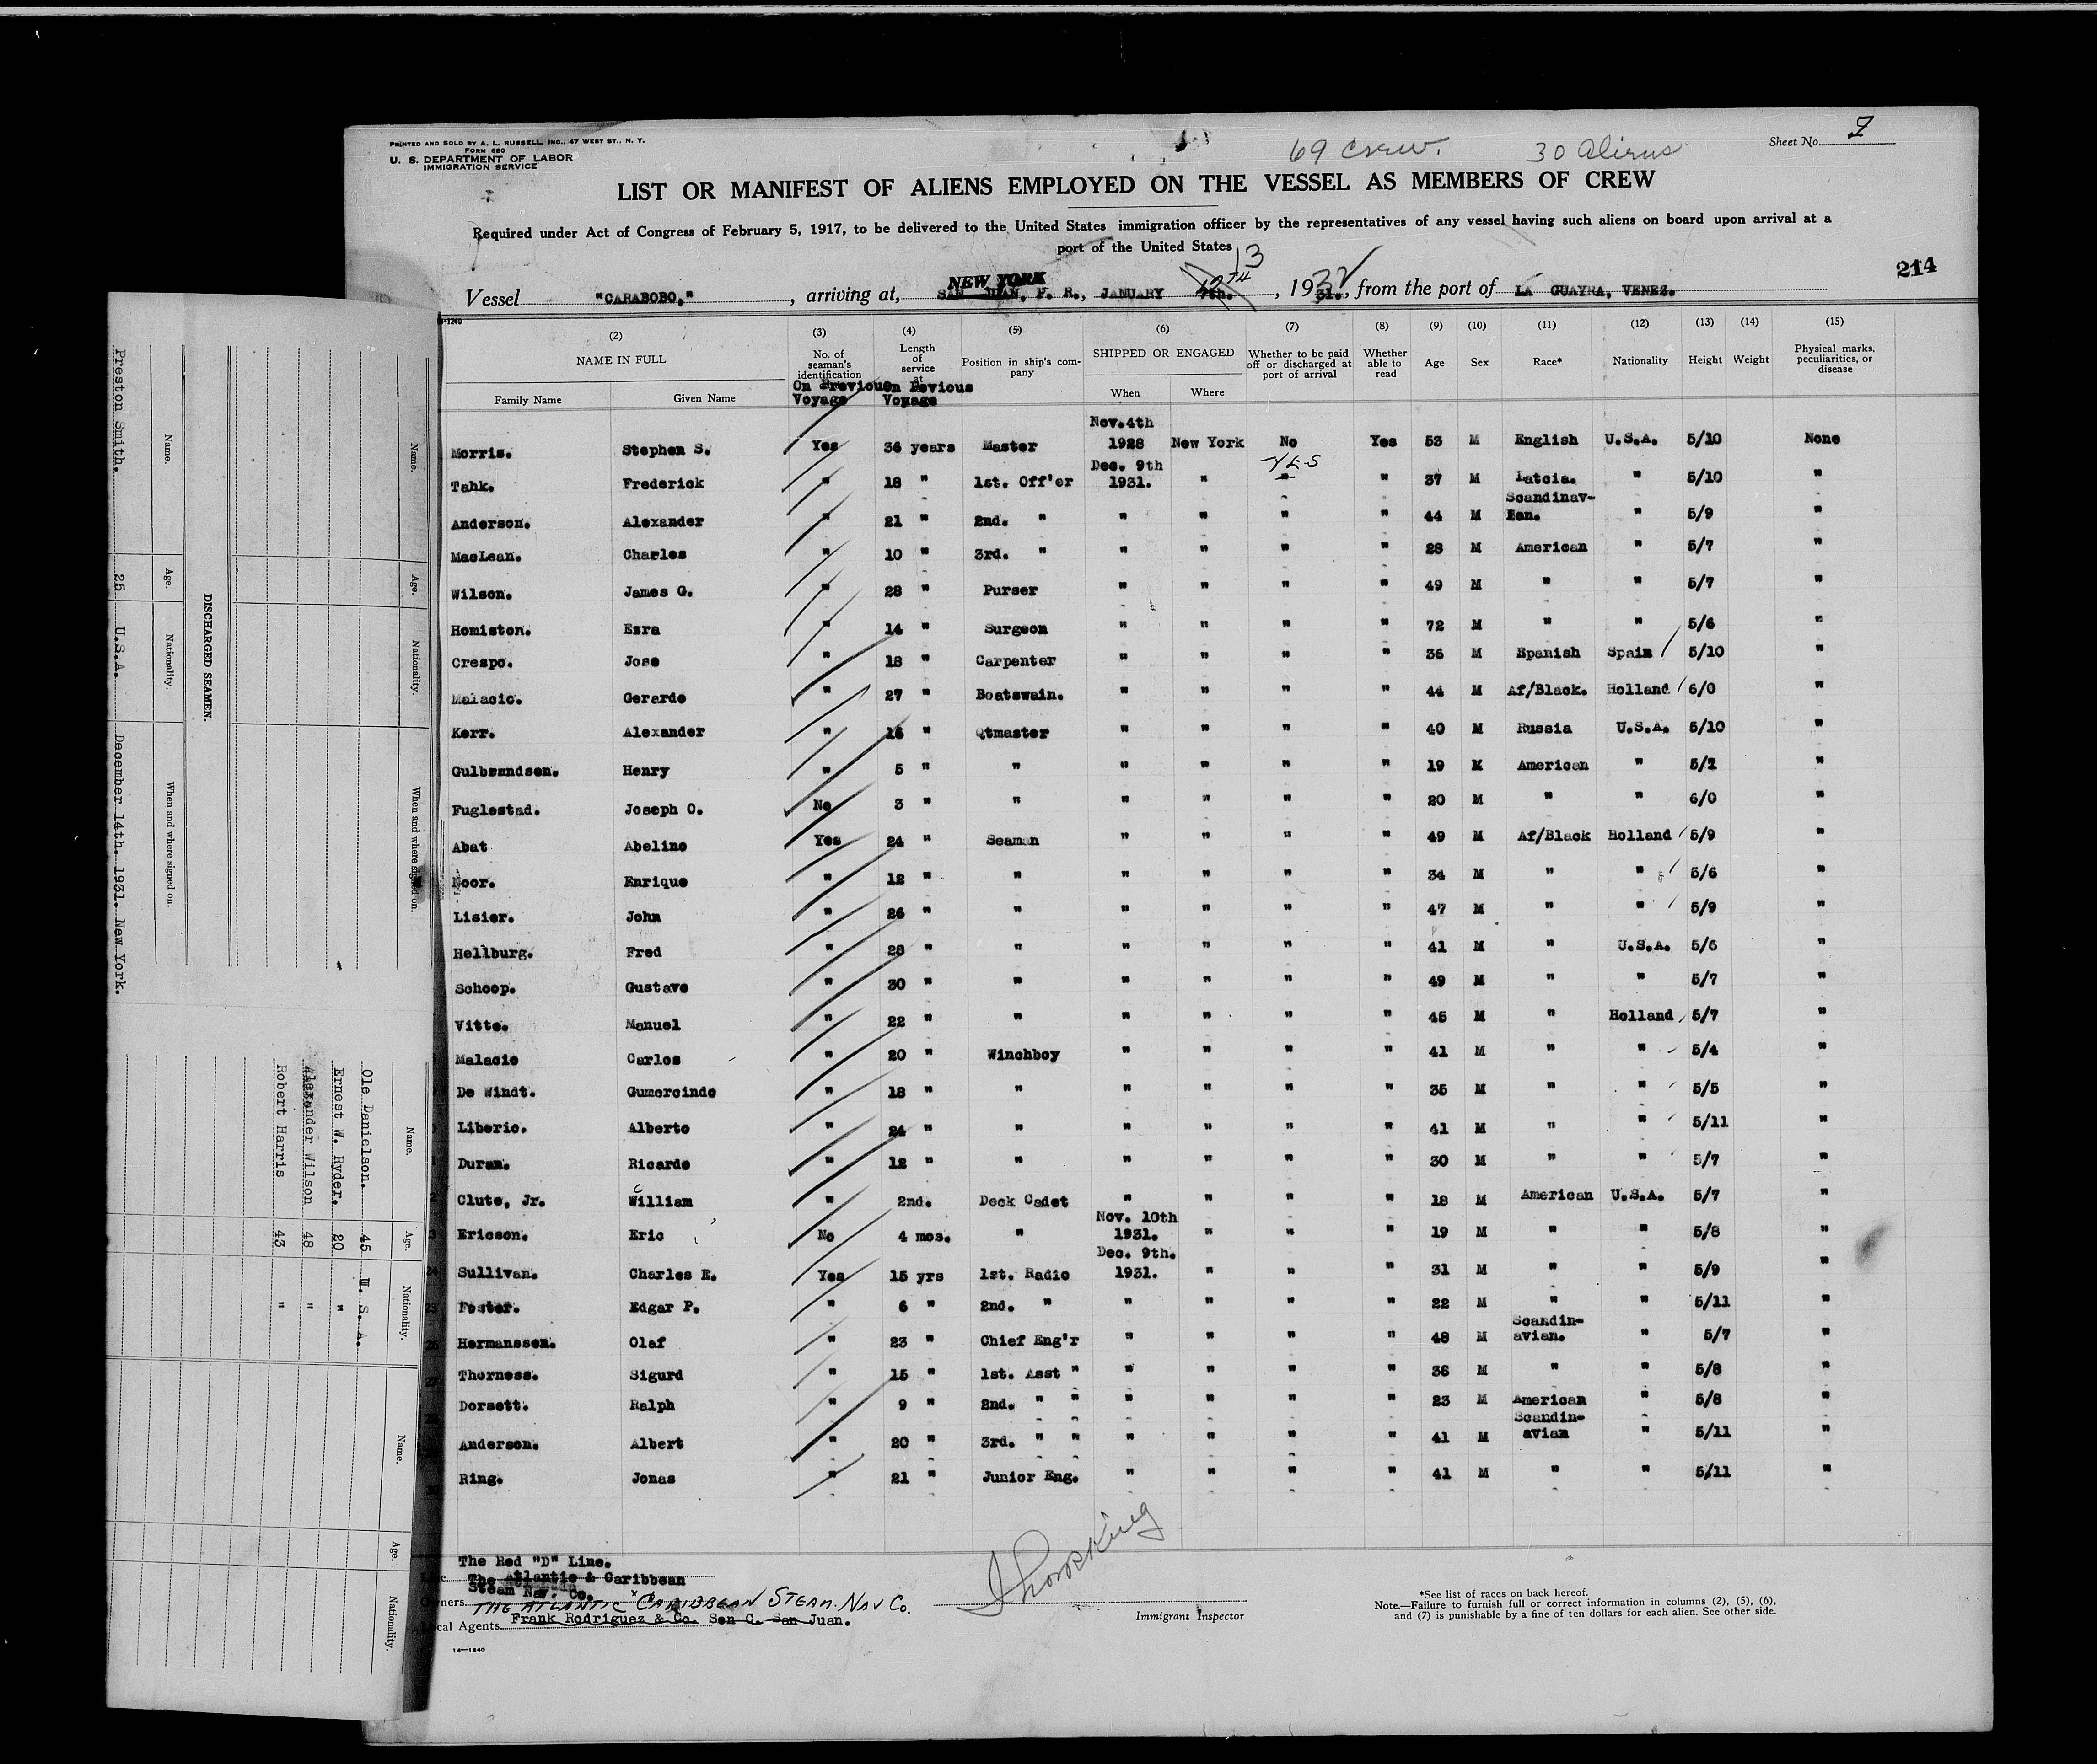 PRINTED AND SOLD BY A. L. RUSSELL, INC., 47 WEST ST., N. Y.
FORM 680
U. S. DEPARTMENT OF LABOR
IMMIGRATION SERVICE
69 Crew. 30 Aliens
Sheet No.
LIST OR MANIFEST OF ALIENS EMPLOYED ON THE VESSEL AS MEMBERS OF CREW
Required under Act of Congress of February 5, 1917, to be delivered to the United States immigration officer by the representatives of any vessel having such aliens on board upon arrival at a
port of the United States
214
NEW YORK 13
Vessel "CARABOBO," , arriving at, SAN JUAN, P. R., JANUARY 7th. 12TH , 1931. 32, from the port of LA GUAYRA, VENEZ.
(2) (3) (4) (5) (6) (7) (8) (9) (10) (11) (12) (13) (14) (15)
NAME IN FULL No. of seaman's identification Length of service at Position in ship's company SHIPPED OR ENGAGED Whether to be paid off or discharged at port of arrival Whether able to read Age Sex Race* Nationality Height Weight Physical marks, peculiarities, or disease
Family Name Given Name On Previous Voyage On Pevious Voyage When Where
Morris. Stephen S. Yes 36 years Master Nov.4th 1928 New York No Yes 53 M English U.S.A. 5/10 None
Tahk. Frederick " 18 " 1st. Off'er Dec. 9th 1931. " YES " " 37 M Latcia. " 5/10 "
Anderson. Alexander " 21 " 2nd. " " " " " 44 M Scandinav-Ean. " 5/9 "
MacLean. Charles " 10 " 3rd. " " " " " 28 M American " 5/7 "
Wilson. James G. " 28 " Purser " " " " 49 M " " 5/7 "
Homiston. Ezra " 14 " Surgeon " " " " 72 M " " 5/6 "
Crespo. Jose " 18 " Carpenter " " " " 36 M Epanish Spain 5/10 "
Malacio. Gerardo " 27 " Boatswain. " " " " 44 M Af/Black. Holland 6/0 "
Kerr. Alexander " 15 " Qtmaster " " " " 40 M Russia U.S.A. 5/10 "
Henry " 5 " " " " " " 19 M American " "
Fuglestad. Joseph O. No 3 " " " " " " 20 M " " 6/0 "
Abat Abelino Yes 24 " Seaman " " " " 49 M Af/Black Holland 5/9 "
Enrique " 12 " " " " " " 34 M " " 5/6 "
Lisier. John " 26 " " " " " " 47 M " " 5/9 "
Hellburg. Fred " 28 " " " " " " 41 M " U.S.A. 5/6 "
Schoop. Gustavo " 30 " " " " " " 49 M " " 5/7 "
Vitto. Manuel " 22 " " " " " " 45 M " Holland 5/7 "
Malacio Carlos " 20 " Winchboy " " " " 41 M " " 5/4 "
De Windt. Gumercindo " 18 " " " " " " 35 M " " 5/5 "
Liberio. Alberto " 24 " " " " " " 41 M " " 5/11 "
Duran. Ricardo " 12 " " " " " " 30 M " " 5/7 "
Clute, Jr. William " 2nd. Deck Cadet " " " " 18 M American U.S.A. 5/7 "
Ericson. Eric No 4 mos. " Nov. 10th 1931. " " " 19 M " " 5/8 "
Sullivan. Charles E. Yes 15 yrs 1st. Radio Dec. 9th. 1931. " " " 31 M " " 5/9 "
Foster. Edgar P. " 6 " 2nd. " " " " " 22 M " " 5/11 "
Hermanssen. Olaf " 23 " Chief Eng'r " " " " 48 M Scandin-avian. " 5/7 "
Thorness. Sigurd " 15 " 1st. Asst " " " " " 36 M " " 5/8 "
Dorsett. Ralph " 9 " 2nd. " " " " " " 23 M American " 5/8 "
Anderson. Albert " 20 " 3rd. " " " " " " 41 M Scandin-avian " 5/11 "
Ring. Jonas " 21 " Junior Eng. " " " " 41 M " " 5/11 "
The Red "D" Line.
The Atlantic & Caribbean
Steam Nav. Co.
Owners THE ATLANTIC & CARIBBEAN STEAM. NAV CO.
Local Agents Frank Rodriguez & Co. Sen C. San Juan.
14—1240
Immigrant Inspector
*See list of races on back hereof.
Note.—Failure to furnish full or correct information in columns (2), (5), (6),
and (7) is punishable by a fine of ten dollars for each alien. See other side.
Name. Age. Nationality. When and where signed on.
DISCHARGED SEAMEN.
Name. Age. Nationality. When and where signed on.
Preston Smith. 25 U.S.A. December 14th. 1931. New York.
Name. Age. Nationality. Name. Age. Nationality.
Ole Danielson. 45 U. S. A.
Ernest W. Ryder. 20 "
Alexander Wilson 48 "
Robert Harris 43 "